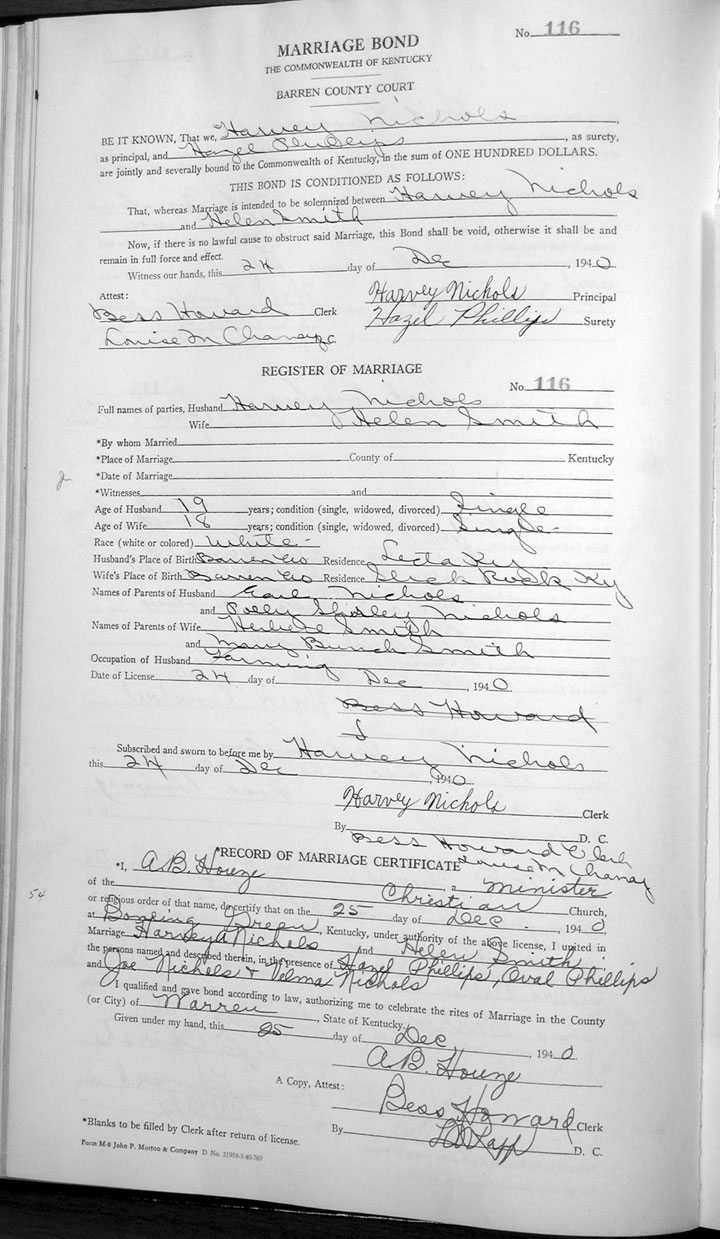 No. 116
MARRIAGE BOND
THE COMMONWEALTH OF KENTUCKY
BARREN COUNTY COURT
BE IT KNOWN, That we, Harvey Nichols,
as principal, and Hazel Phillips, as surety,
are jointly and severally bound to the Commonwealth of Kentucky, in the sum of ONE HUNDRED DOLLARS.
THIS BOND IS CONDITIONED AS FOLLOWS:
That, whereas Marriage is intended to be solemnized between Harvey Nichols
and Helen Smith
Now, if there is no lawful cause to obstruct said Marriage, this Bond shall be void, otherwise it shall be and
remain in full force and effect.
Witness our hands, this 24 day of Dec, 1940
Attest: Harvey Nichols Principal
Bess Howard Clerk
Hazel Phillips Surety
Louise M Chaney
REGISTER OF MARRIAGE
No. 116
Full names of parties, Husband Harvey Nichols
Wife Helen Smith
*By whom Married
*Place of Marriage County of Kentucky
*Date of Marriage
*Witnesses and
Age of Husband 19 years; condition (single, widowed, divorced) Single
Age of Wife 18 years; condition (single, widowed, divorced) Single
Race (white or colored) White
Husband's Place of Birth Barren Co Residence Lecta Ky
Wife's Place of Birth Barren Co Residence Slick Rock Ky
Names of Parents of Husband Nichols
and Polly Shirley Nichols
Names of Parents of Wife Smith
and Mary Bunch Smith
Occupation of Husband Farming
Date of License 24 day of Dec, 1940
Bess Howard
Subscribed and sworn to before me by Harvey Nichols
this 24 day of Dec, 1940
Harvey Nichols Clerk
By D. C.
Bess Howard Clerk
*RECORD OF MARRIAGE CERTIFICATE Louise M Chaney
*I, A.B. Houze, a minister
of the Christian Church,
54
or religious order of that name, do certify that on the 25 day of Dec. 1940
at Bowling Green, Kentucky, under authority of the above license, I united in
Marriage Harvey A Nichols and Helen Smith
the persons named and described therein, in the presence of Hazel Phillips, Oval Phillips
and Joe Nichols & Velma Nichols
I qualified and gave bond according to law, authorizing me to celebrate the rites of Marriage in the County
(or City) of Warren, State of Kentucky.
Given under my hand, this 25 day of Dec, 1940
A.B. Houze
A Copy, Attest:
Bess Howard Clerk
By D. C.
*Blanks to be filled by Clerk after return of license.
Form M-8 John P. Morton & Company